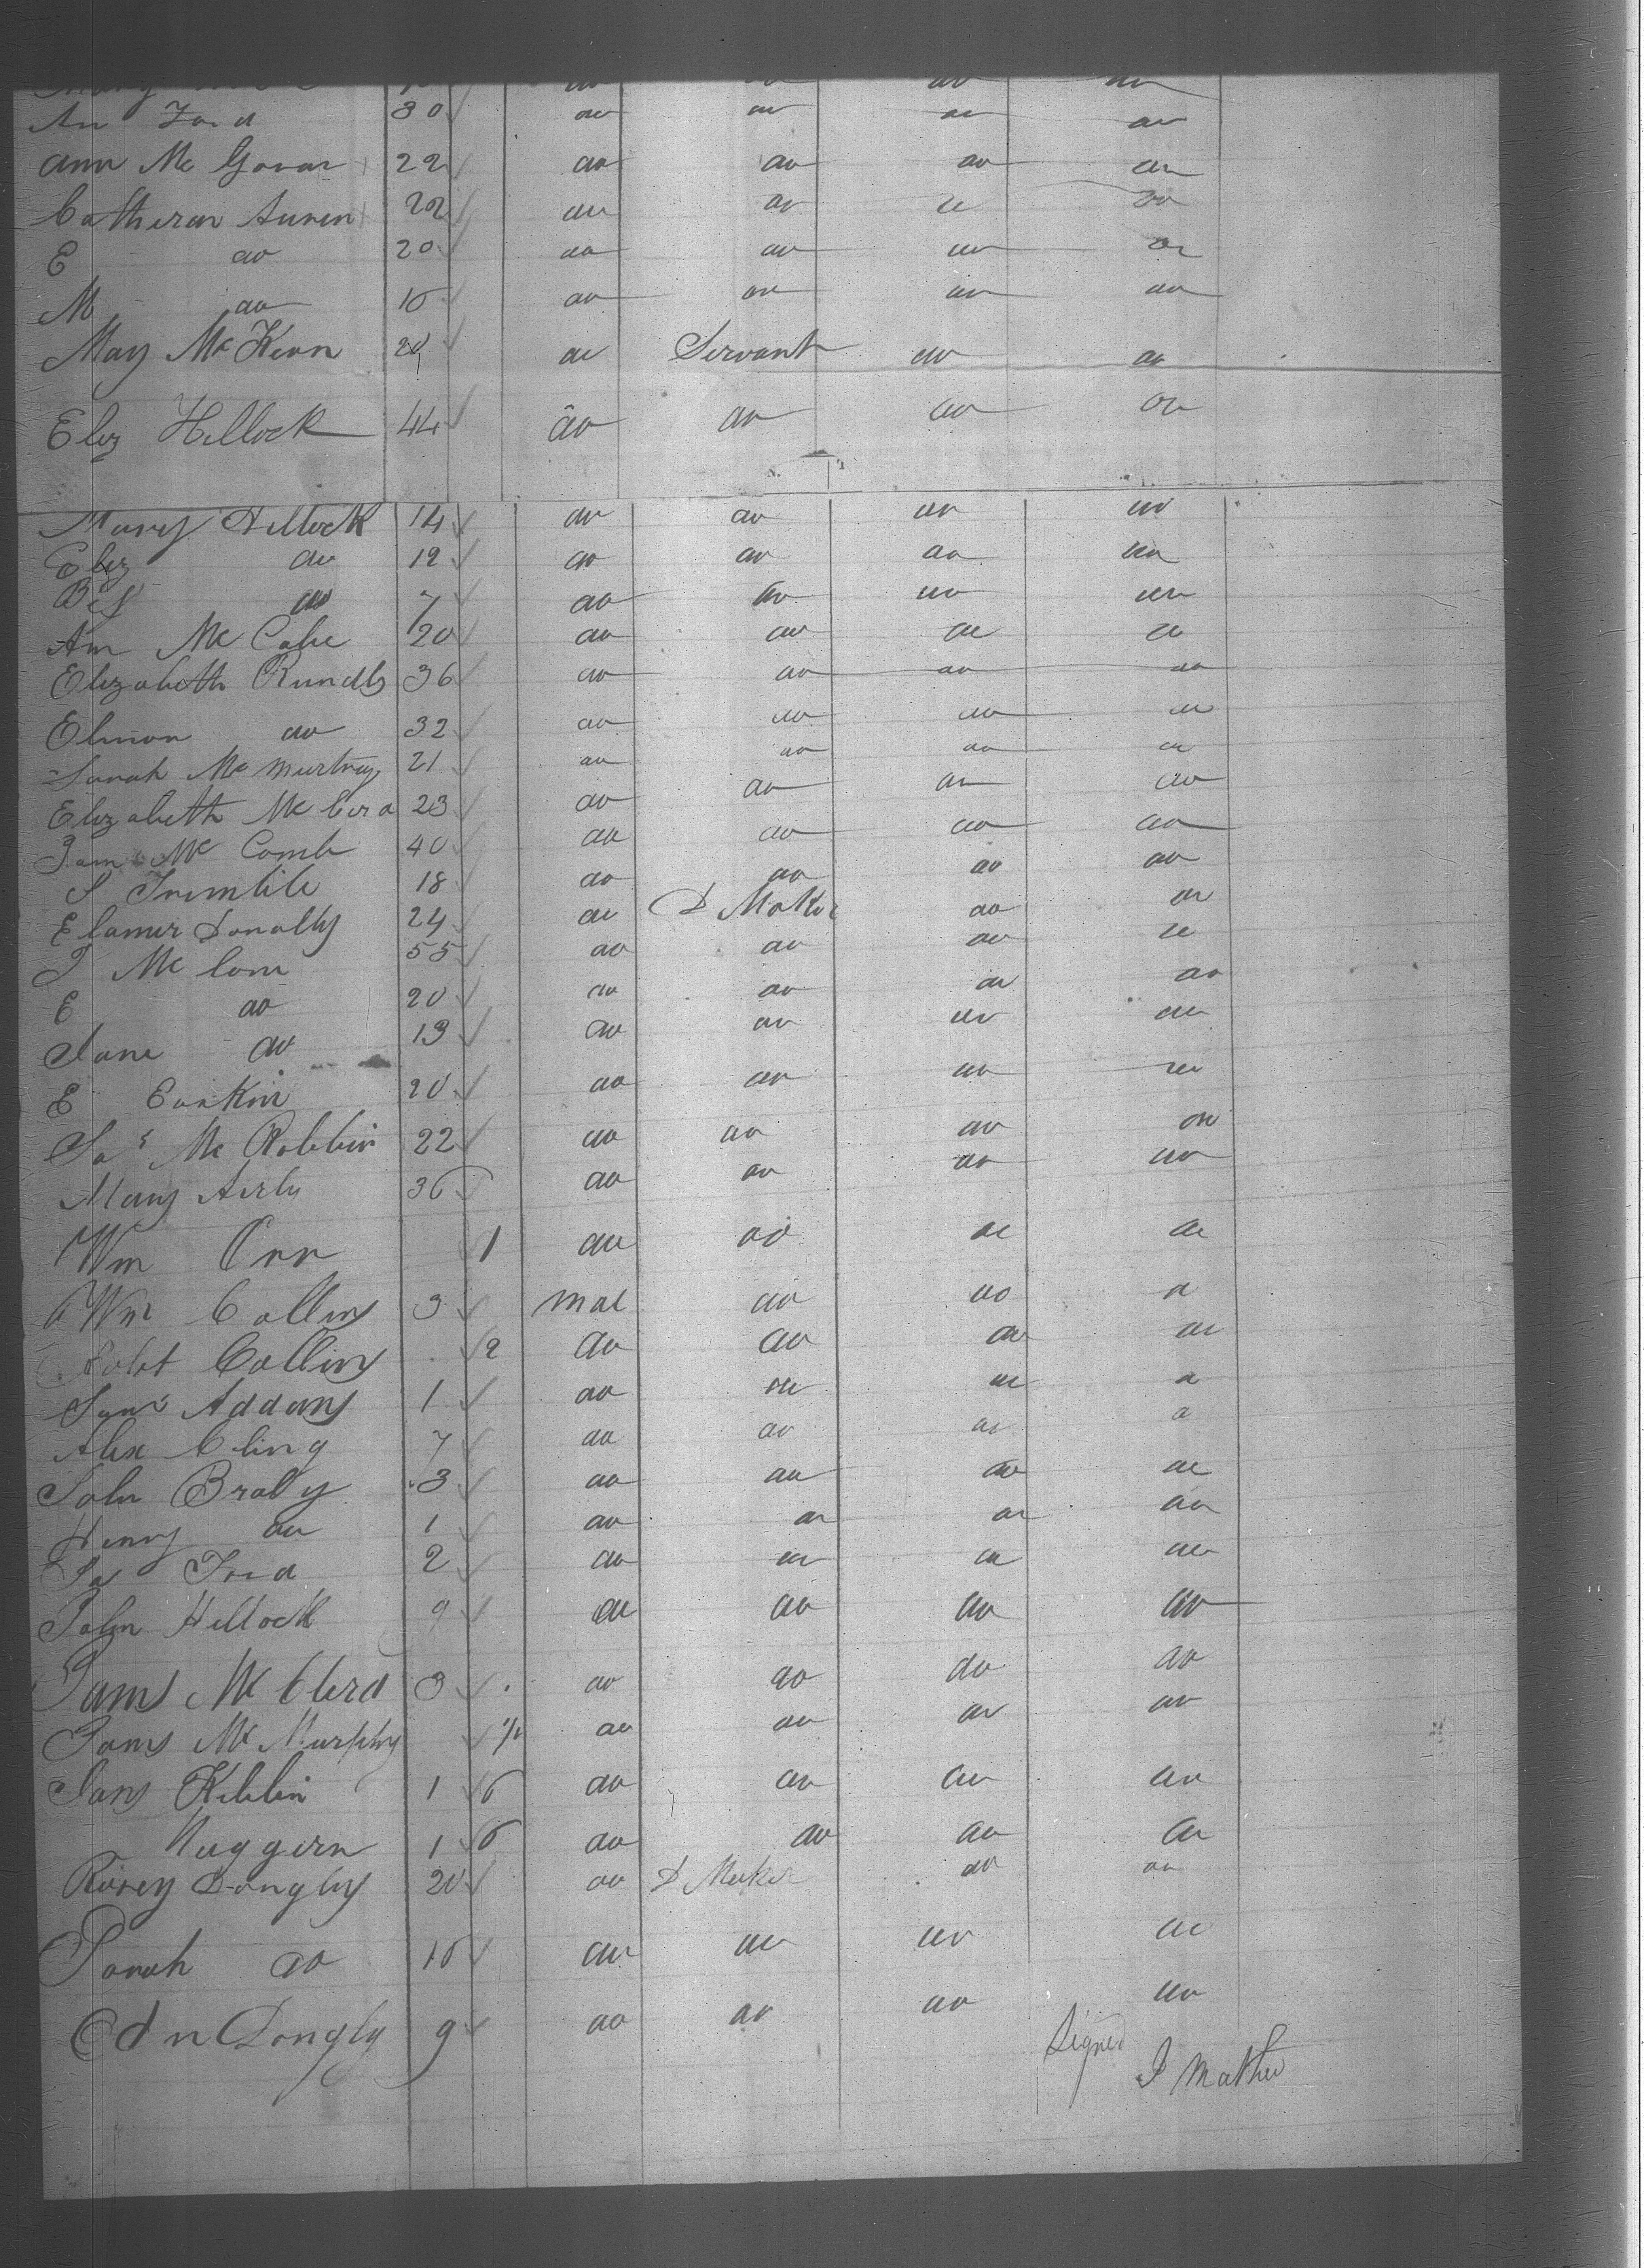 An Ford 30 do do do do
Ann Mc Govar 22 do do do do
Catheran 22 do do do do
E do 20 do do do do
M do do do do do
May McKeon do Servant do do
Eliz Hillock 44 do do do do
Mary Hillock 14 do do do do
Eliz do 12 do do do do
do 7 do do do do
Ann Mc Cabe 20 do do do do
Elizabeth 36 do do do do
Elinon do 32 do do do do
Sarah Mc Murtray 21 do do do do
Elizabeth Mc 23 do do do do
Jam Mc Comb 40 do do do do
S Trimble 18 do do do do
Elamer Donally 24 do D Maker do do
J Mc 55 do do do do
E do 20 do do do do
Jane do 13 do do do do
E Eankin 20 do do do do
Mc Robbin 22 do do do do
Mary 36 do do do do
Wm Orr 1 do do do do
Wm Collins 3 mal do do do
Robt Collins 2 do do do do
Saml Addams 1 do do do do
Alex Cling 7 do do do do
John Brady 3 do do do do
Henry do 1 do do do do
Ja Ford 2 do do do do
John Hillock 9 do do do do
Jams Mc 3 do do do do
Jams Mc Murphy do do do do
Jams Kibbin 1 6 do do do do
Nuggern 1 6 do do do do
Rosey Dongly 20 do D Maker do do
Sarah do do do do do
Edn Dongly 9 do do do do
Signed
J Mather